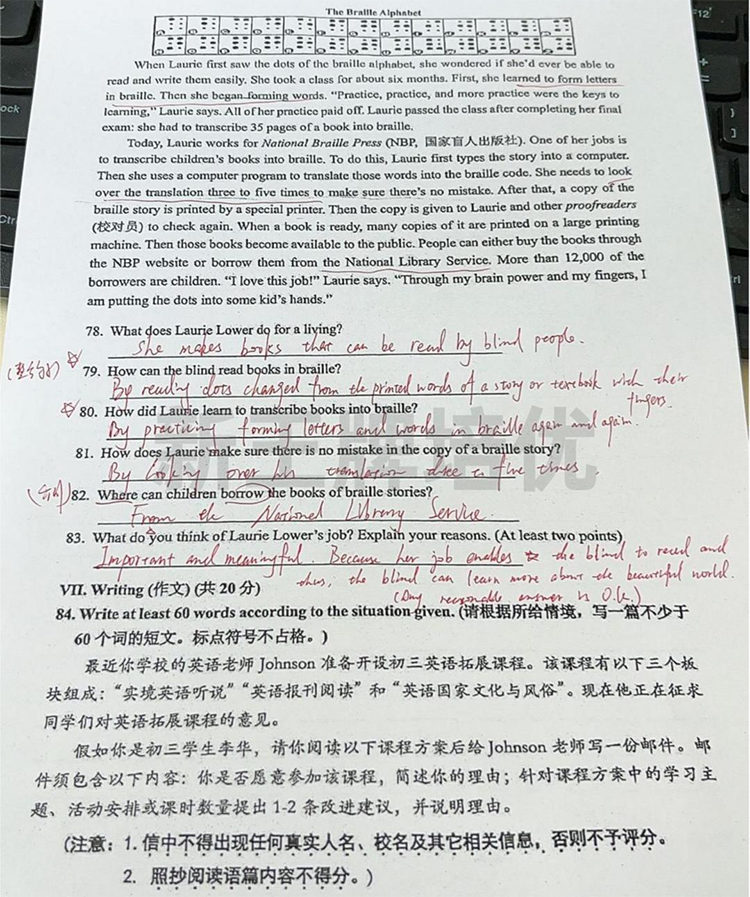 The Braille Alphabet
When Laurie first saw the dots of the braille alphabet, she wondered if she'd ever be able to
read and write them easily. She took a class for about six months. First, she learned to form letters
in braille. Then she began forming words. "Practice, practice, and more practice were the keys to
learning," Laurie says. All of her practice paid off. Laurie passed the class after completing her final
exam: she had to transcribe 35 pages of a book into braille.
Today, Laurie works for National Braille Press (NBP, 国家盲人出版社). One of her jobs is
to transcribe children's books into braille. To do this, Laurie first types the story into a computer.
Then she uses a computer program to translate those words into the braille code. She needs to look
over the translation three to five times to make sure there's no mistake. After that, a copy of the
braille story is printed by a special printer. Then the copy is given to Laurie and other proofreaders
(校对员) to check again. When a book is ready, many copies of it are printed on a large printing
machine. Then those books become available to the public. People can either buy the books through
the NBP website or borrow them from the National Library Service. More than 12,000 of the
borrowers are children. "I love this job!" Laurie says. "Through my brain power and my fingers, I
am putting the dots into some kid's hands."
78. What does Laurie Lower do for a living?
She makes books that can be read by blind people.
79. How can the blind read books in braille?
By reading dots changed from the printed words of a story or textbook with their
fingers.
80. How did Laurie learn to transcribe books into braille?
By practicing forming letters and words in braille again and again.
81. How does Laurie make sure there is no mistake in the copy of a braille story?
By looking over her translation three to five times
82. Where can children borrow the books of braille stories?
From the National Library Service.
83. What do you think of Laurie Lower's job? Explain your reasons. (At least two points)
Important and meaningful. Because her job enables the blind to read and
thus, the blind can learn more about the beautiful world.
(Any reasonable answer is O.K.)
VII. Writing (作文) (共 20 分)
84. Write at least 60 words according to the situation given. (请根据所给情境，写一篇不少于
60 个词的短文。标点符号不占格。)
最近你学校的英语老师 Johnson 准备开设初三英语拓展课程。该课程有以下三个板
块组成：“实境英语听说”“英语报刊阅读”和“英语国家文化与风俗”。现在他正在征求
同学们对英语拓展课程的意见。
假如你是初三学生李华，请你阅读以下课程方案后给 Johnson 老师写一份邮件。邮
件须包含以下内容：你是否愿意参加该课程，简述你的理由；针对课程方案中的学习主
题、活动安排或课时数量提出 1-2 条改进建议，并说明理由。
(注意：1. 信中不得出现任何真实人名、校名及其它相关信息，否则不予评分。
2. 照抄阅读语篇内容不得分。)
新王牌培优